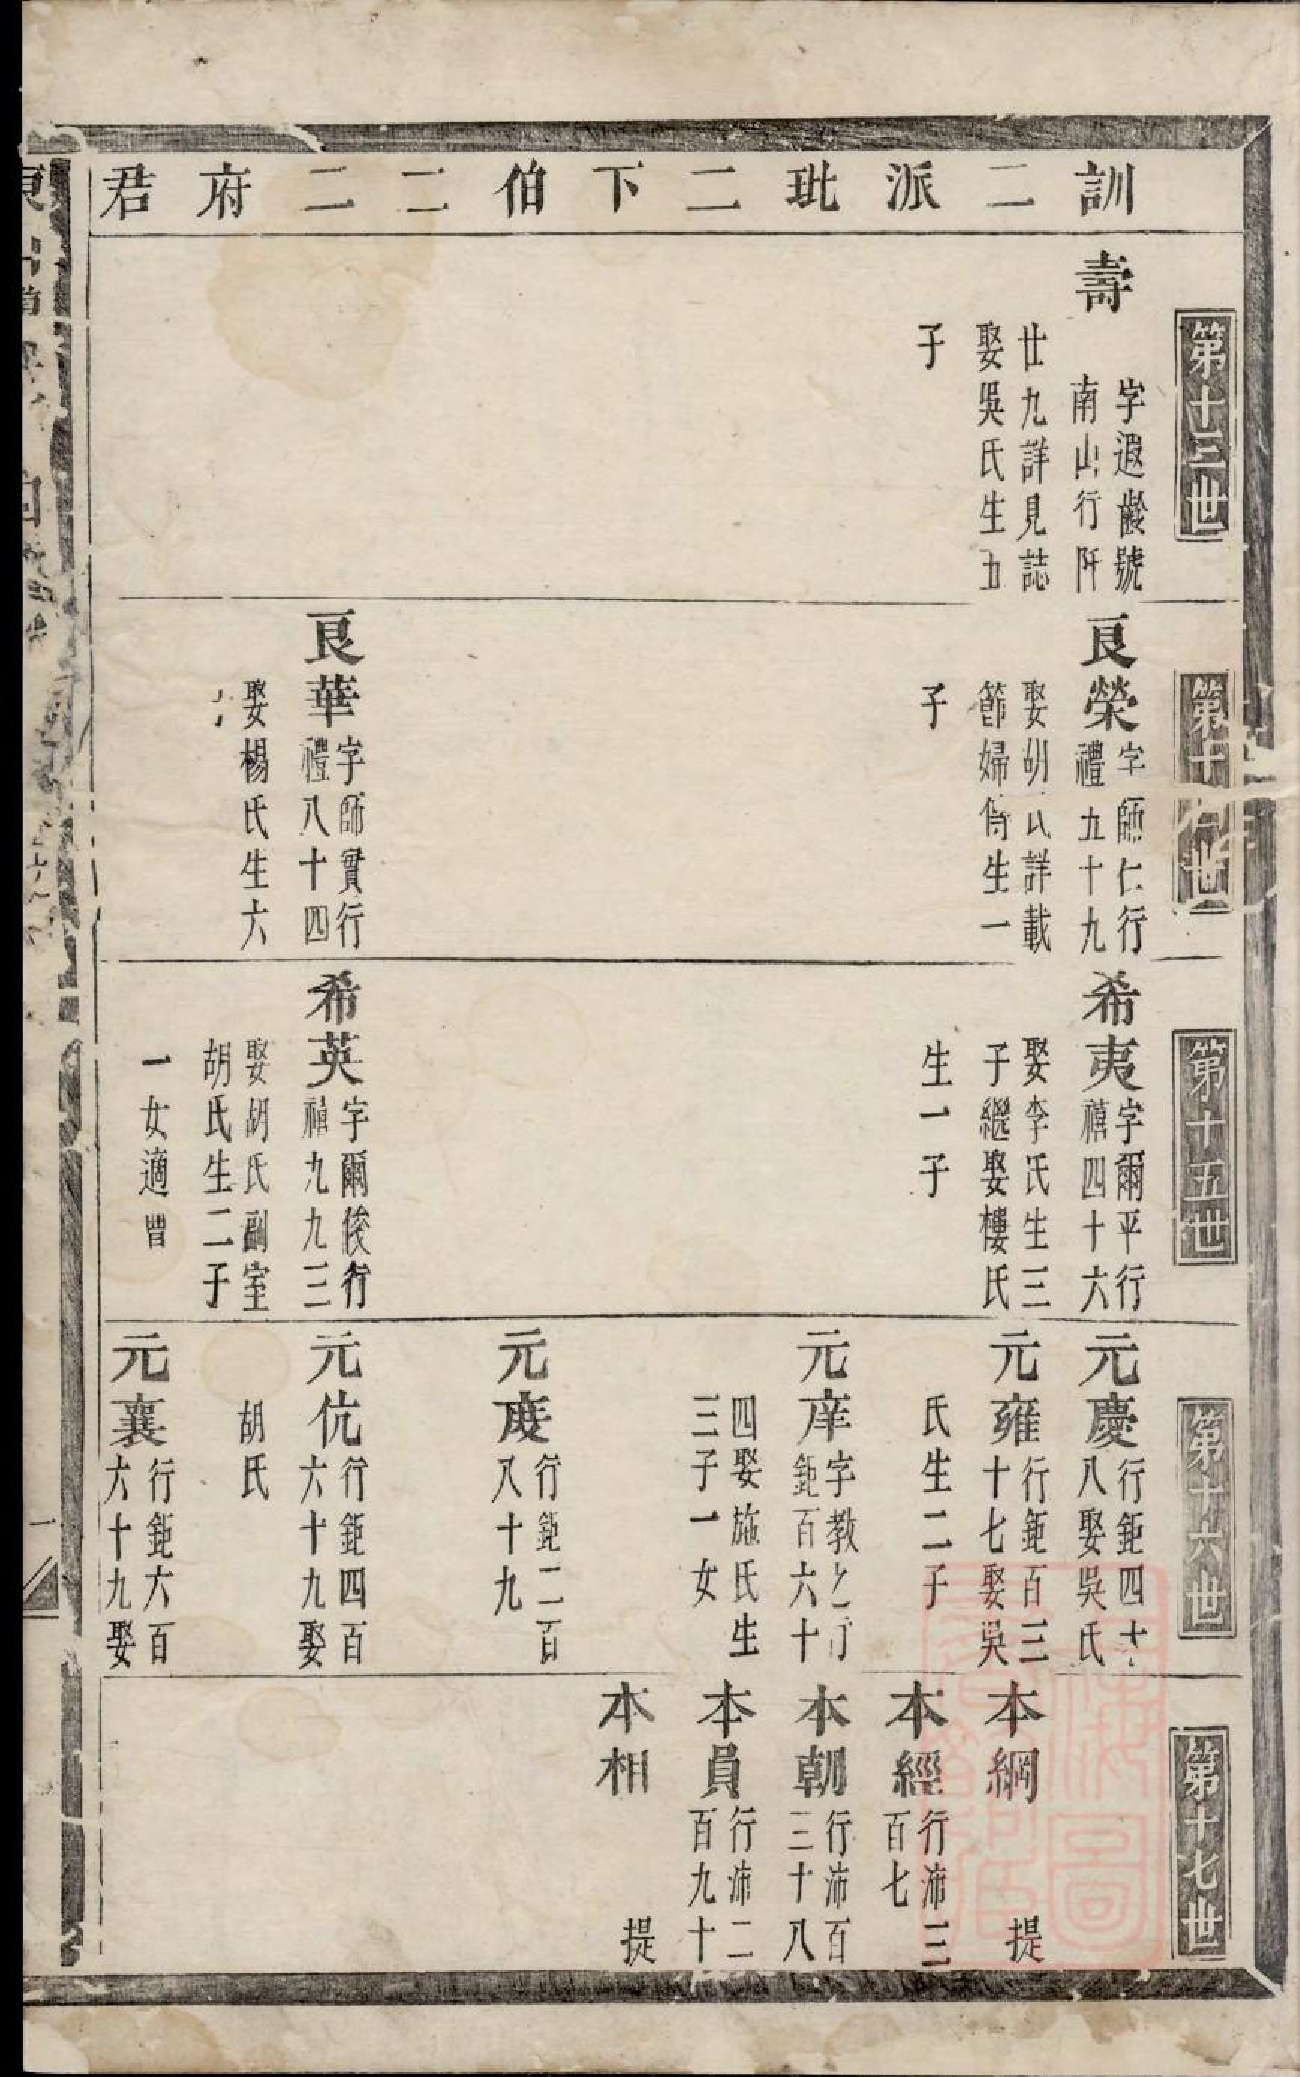 訓二派玭二下伯二二府君
第十三世
壽
字遐齡號
南山行阡
廿九詳見誌
娶吳氏生五
子
第十四世
良榮
字師仁行
禮五十九
娶胡氏詳載
節婦傳生一
子
良華
字師實行
禮八十四
娶楊氏生六
第十五世
希夷
字爾平行
禧四十六
娶李氏生三
子繼娶樓氏
生一子
希英
字爾俊行
禧九九三
娶胡氏副室
胡氏生二子
一女適曹
第十六世
元慶
行鉅四十
八娶吳氏
元雍
行鉅百三
十七娶吳
氏生二子
元庠
字教之行
鉅百六十
四娶施氏生
三子一女
元度
行鉅二百
八十九
元伉
行鉅四百
六十九娶
胡氏
元襄
行鉅六百
六十九娶
第十七世
本綱
提
本經
行沛三
百七
本朝
行沛百
三十八
本員
行沛二
百九十
本相
提